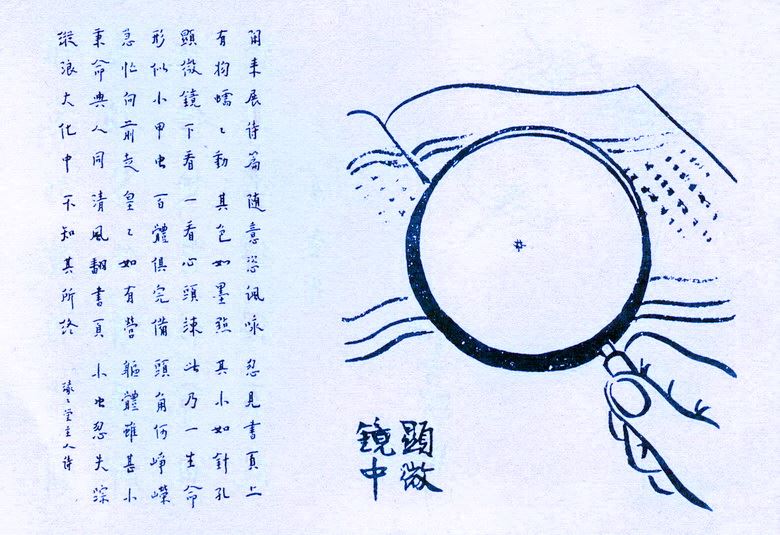 閒來展詩篇 隨意恣諷咏 忽見書頁上
有物蠕々動 其色如墨點 其小如針孔
顯微鏡下看 一看心頭竦 此乃一生命
形似小甲虫 百體俱完備 頭角何崢嶸
急忙向前走 皇々如有營 軀體雖甚小
秉命與人同 清風翻書頁 小虫忽失踪
縱浪大化中 不知其所終 緣々堂主人詩
顯微
鏡中